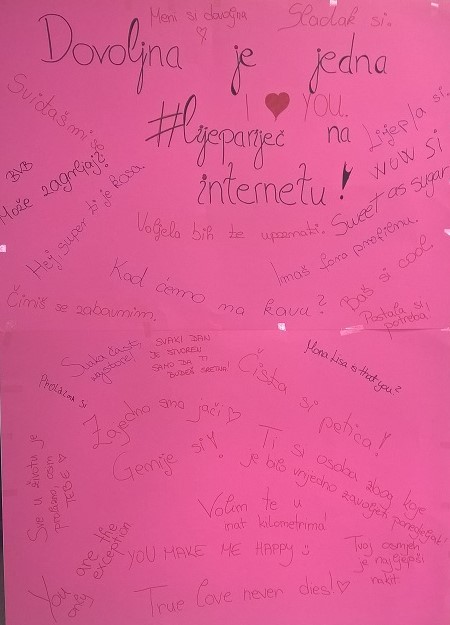 Meni si dovoljna ♡
Sladak si.
Dovoljna je jedna
I ♥ YOU.
#lijepariječ na
internetu!
Sviđaš mi se
BVB
Može zagrljaj?
Hej! super ti je kosa.
Lijepa si.
WOW SI
Sweet as sugar
Voljela bih te upoznati.
Imaš fora profilnu.
Kad ćemo na kavu?
Baš si cool.
Činiš se zabavnim.
Postala si
potreba
Svaka čast,
SVAKI DAN
JE STVOREN
SAMO DA TI
BUDEŠ SRETNA!
Čista si petica!
Mona Lisa is that you?
Zajedno smo jači ♡
Genije si!
Ti si osoba zbog koje
je bilo vrijedno
Sve u životu je
prolazno, osim
TEBE ♡
Volim te u
inat kilometrima!
You are the
only exception
YOU MAKE ME HAPPY :)
Tvoj osmijeh
je najljepši
nakit.
True love never dies! ♡